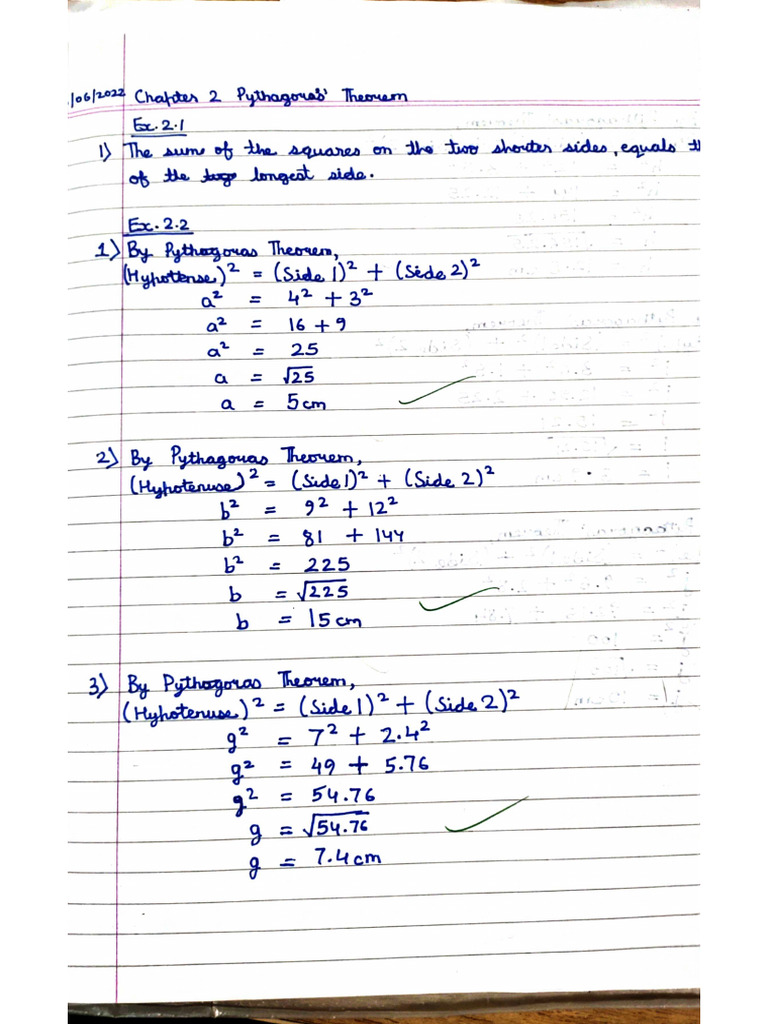 /06/2022 Chapter 2 Pythagoras' Theorem
Ex. 2.1
1) The sum of the squares on the two shorter sides, equals
of the longest side.
Ex. 2.2
1) By Pythagoras Theorem,
(Hypotense)² = (Side 1)² + (Side 2)²
a² = 4² + 3²
a² = 16 + 9
a² = 25
a = √25
a = 5cm
2) By Pythagoras Theorem,
(Hypotenuse)² = (Side 1)² + (Side 2)²
b² = 9² + 12²
b² = 81 + 144
b² = 225
b = √225
b = 15cm
3) By Pythagoras Theorem,
(Hypotenuse)² = (Side 1)² + (Side 2)²
g² = 7² + 2.4²
g² = 49 + 5.76
g² = 54.76
g = √54.76
g = 7.4cm